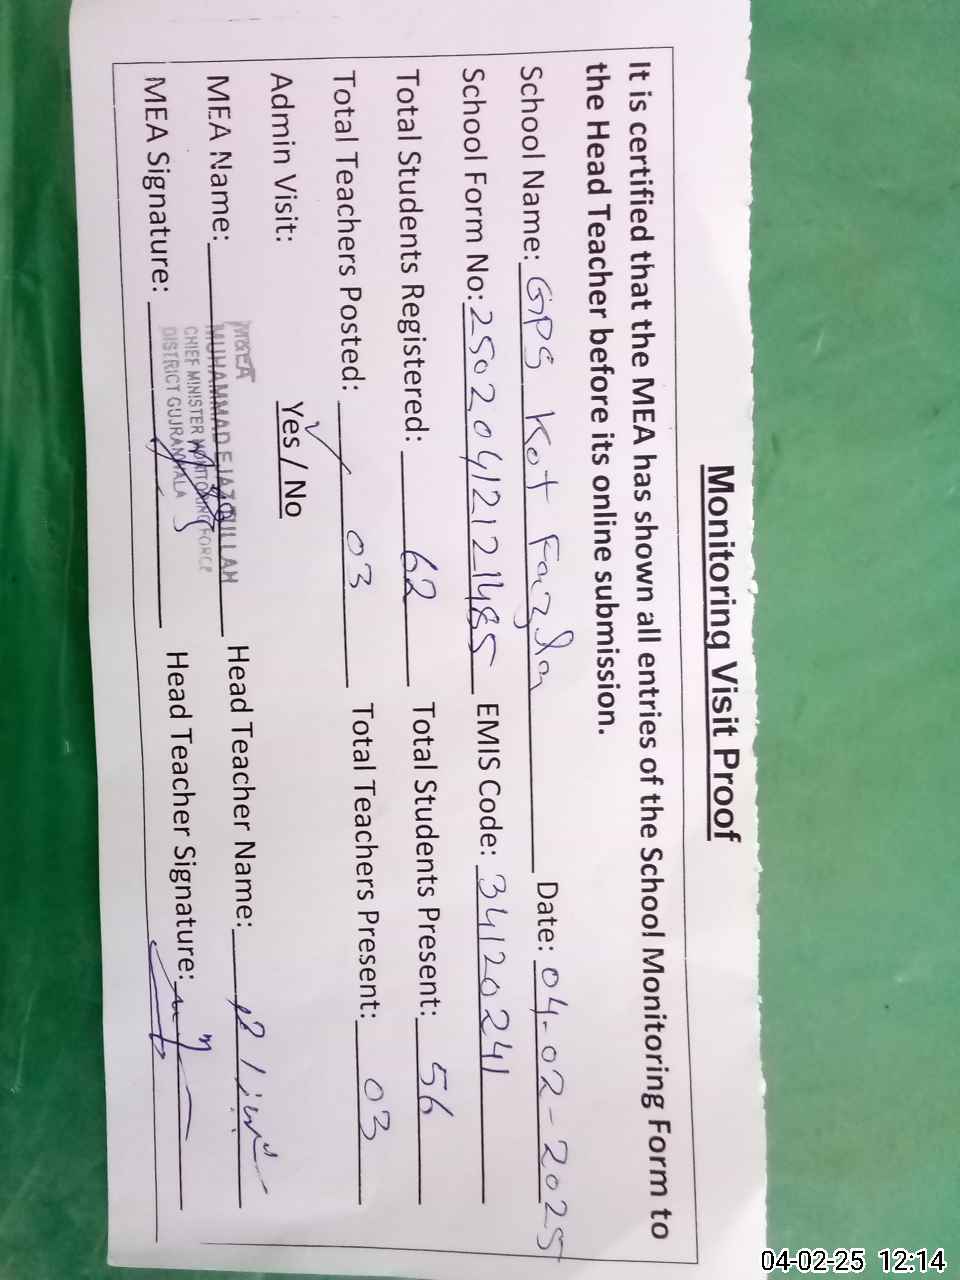 Monitoring Visit Proof
It is certified that the MEA has shown all entries of the School Monitoring Form to
the Head Teacher before its online submission.
School Name: GPS Kot Fazdar Date: 04-02-2025
School Form No: 25020412121485 EMIS Code: 34120241
Total Students Registered: 62 Total Students Present: 56
Total Teachers Posted: 03 Total Teachers Present: 03
Admin Visit: Yes / No
MEA Name: Head Teacher Name:
MEA Signature: Head Teacher Signature:
M&EA
MUHAMMAD EJAZ ULLAH
CHIEF MINISTER MONITORING FORCE
DISTRICT GUJRANWALA
04-02-25 12:14